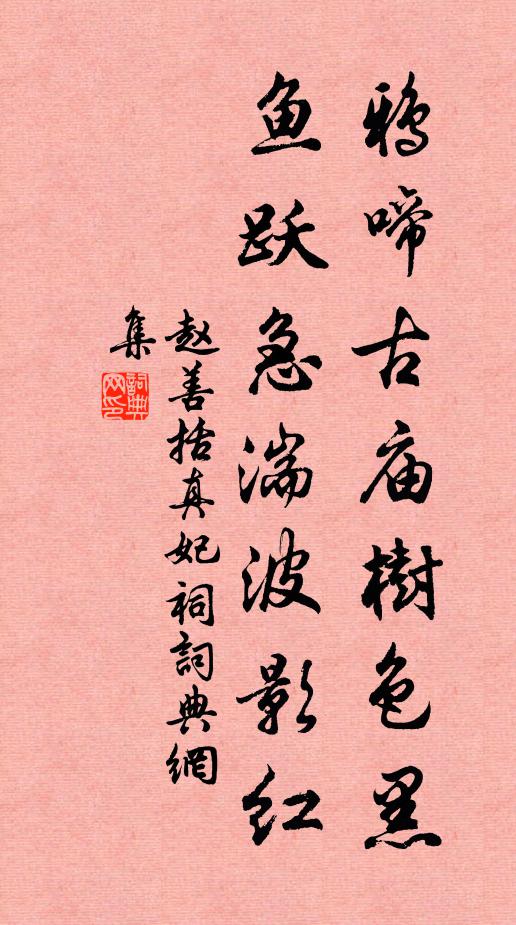 鸦啼古庙樹色黑
鱼跃急湍波影红
赵善括真妃祠詞典網
集
詞典
网印